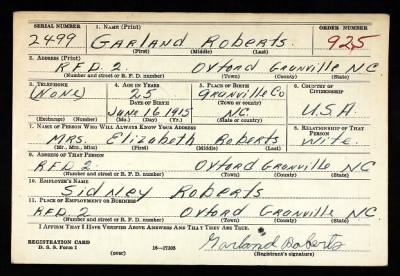 SERIAL NUMBER 1. NAME (Print) ORDER NUMBER
2499 GARLAND ROBERTS. 925
(First) (Middle) (Last)
2. ADDRESS (Print)
R.F.D. 2 OXFORD GRANVILLE N.C.
(Number and street or R. F. D. number) (Town) (County) (State)
3. TELEPHONE 4. AGE IN YEARS 5. PLACE OF BIRTH 6. COUNTRY OF CITIZENSHIP
(NONE) 25 GRANVILLE CO
DATE OF BIRTH (Town or county)
JUNE 16 1915 N.C. U.S.A.
(Exchange) (Number) (Mo.) (Day) (Yr.) (State or country)
7. NAME OF PERSON WHO WILL ALWAYS KNOW YOUR ADDRESS 8. RELATIONSHIP OF THAT PERSON
MRS. Elizabeth ROBERTS Wife.
(Mr., Mrs., Miss) (First) (Middle) (Last)
9. ADDRESS OF THAT PERSON
R.F.D. 2. OXFORD GRANVILLE N.C.
(Number and street or R. F. D. number) (Town) (County) (State)
10. EMPLOYER'S NAME
SIDNEY ROBERTS
11. PLACE OF EMPLOYMENT OR BUSINESS
R.F.D. 2 OXFORD GRANVILLE N.C.
(Number and street or R. F. D. number) (Town) (County) (State)
I AFFIRM THAT I HAVE VERIFIED ABOVE ANSWERS AND THAT THEY ARE TRUE.
REGISTRATION CARD
D. S. S. Form 1 (over) 16—17105 Garland Roberts
(Registrant's signature)